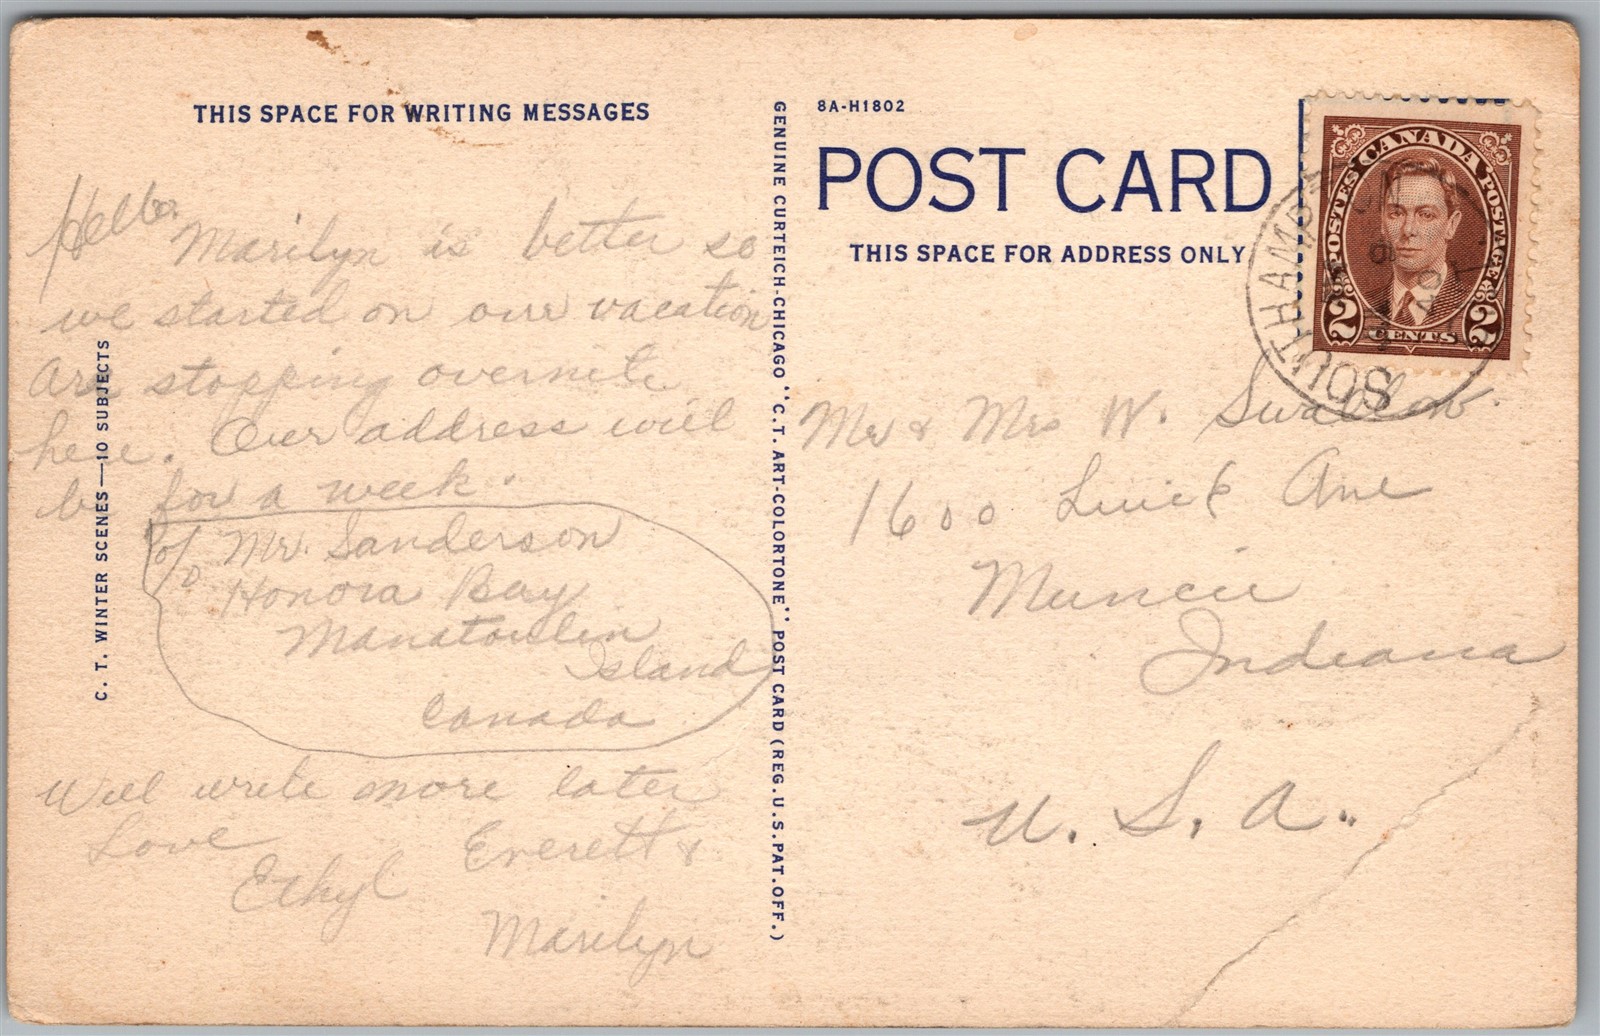 THIS SPACE FOR WRITING MESSAGES
Hello
Marilyn is better so
we started on our vacation
Are stopping overnite
here. Our address will
be for a week.
c/o Mr. Sanderson
Honora Bay
Manatoulin
Island
Canada
Will write more later
Love
Everett &
Ethyl
Marilyn
C. T. WINTER SCENES—10 SUBJECTS
GENUINE CURTEICH-CHICAGO "C.T. ART-COLORTONE" POST CARD (REG. U.S. PAT. OFF.)
8A-H1802
POST CARD
THIS SPACE FOR ADDRESS ONLY
CANADA
POSTES POSTAGE
2 CENTS 2
SOUTHAMPT
40
Mr & Mrs W. Swallow.
1600 Luick Ave
Muncie
Indiana
U. S. A.